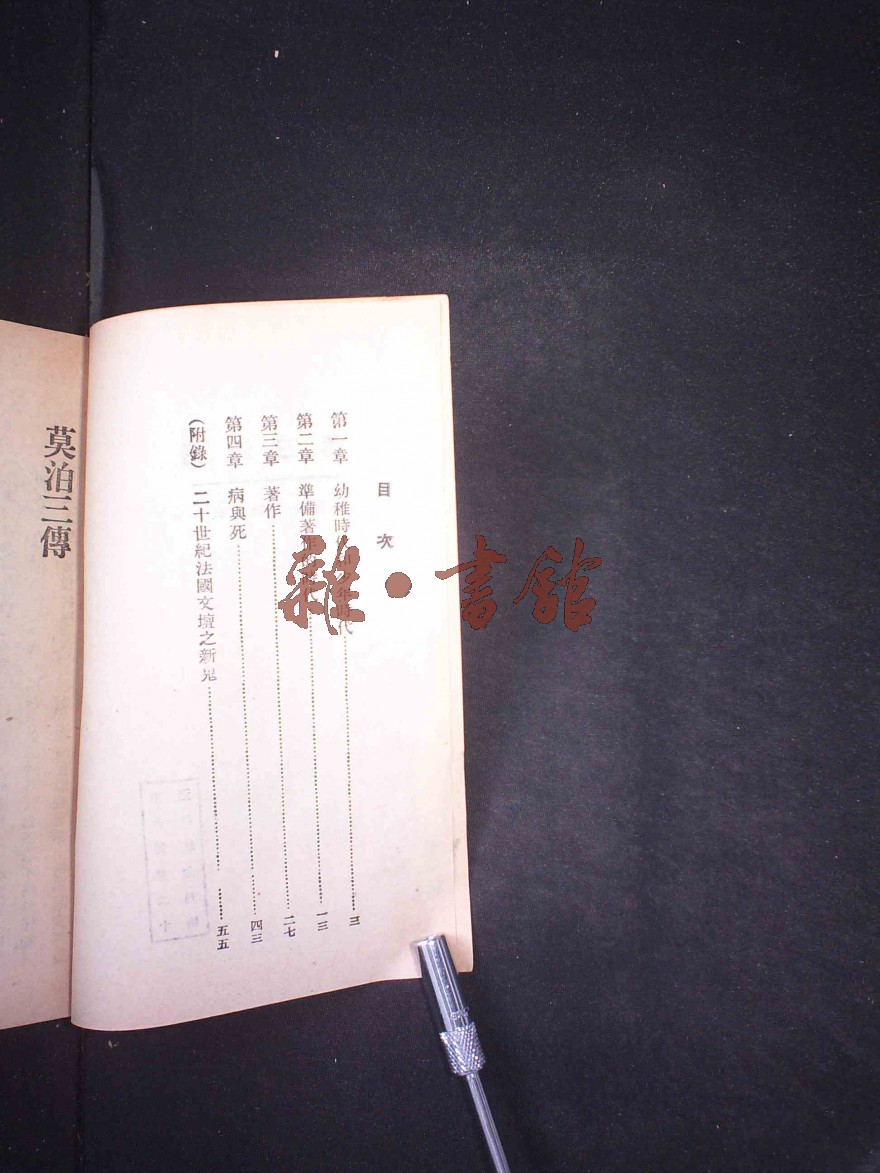 目次
第一章 幼稚時 年時代 三
第二章 準備著作 一三
第三章 著作 二七
第四章 病與死 四三
(附錄) 二十世紀法國文壇之新鬼 五五
莫泊三傳
雜·書館